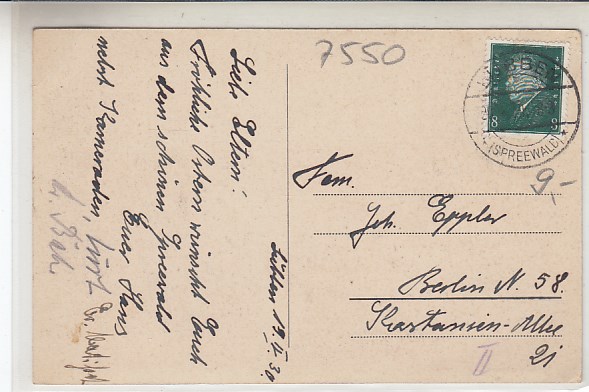 7550
LÜBBEN
(SPREEWALD)
8 8
9,-
Lübben 19.4.30.
Liebe Eltern!
Fröhliche Ostern wünscht Euch
aus dem schönen Spreewald
Euer Hans
nebst Kameraden, Kurt
Fam.
Joh. Eppler
Berlin N. 58.
Kastanien-Allee
21
II